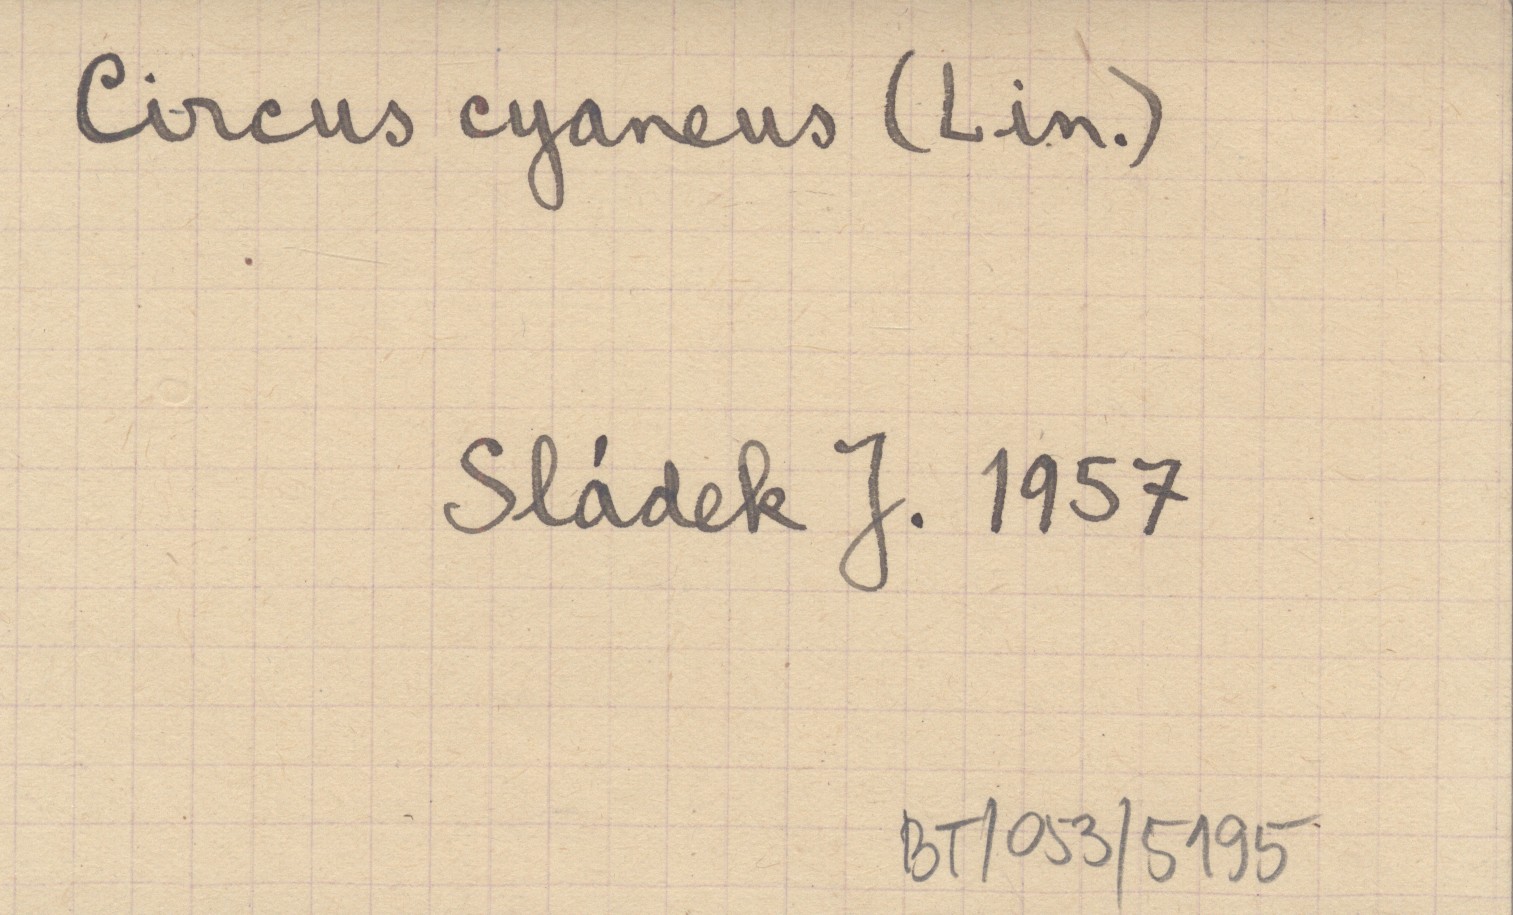 Circus cyaneus (Lin.)
Sládek J. 1957
BT/053/5195